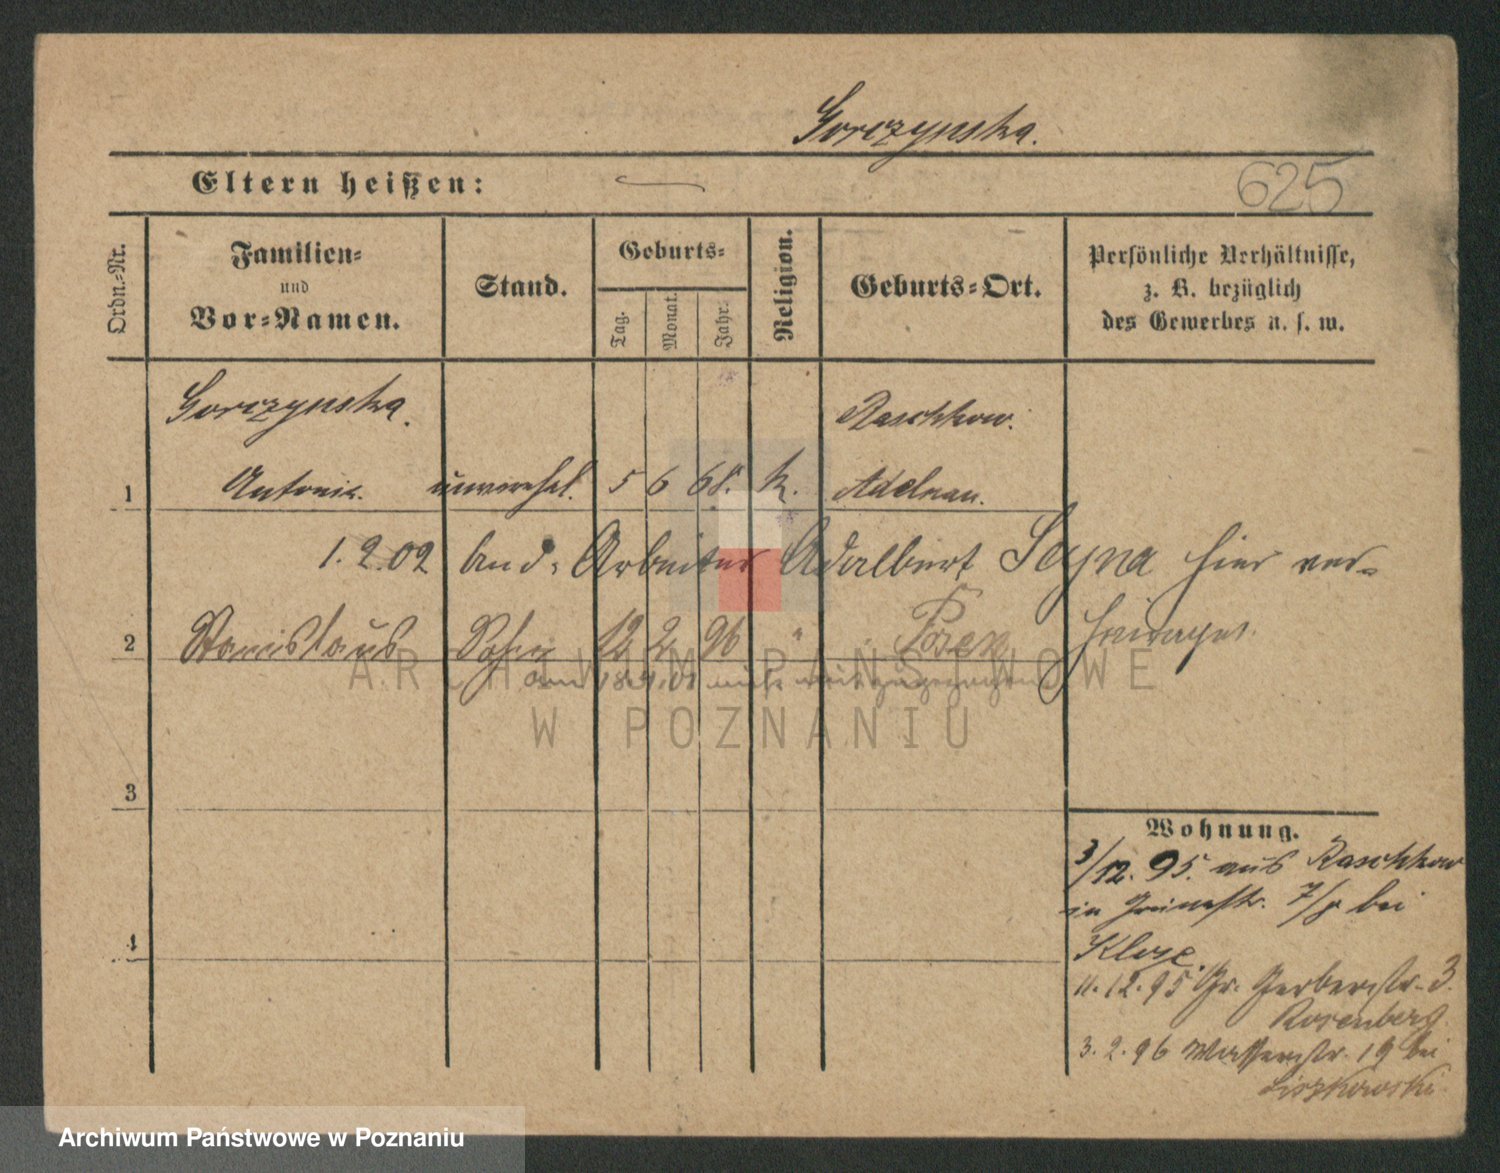 Gorczynska.
Eltern heißen: —
625
Ordn.-Nr.
Familien-
und
Vor-Namen.
Stand.
Geburts-
Tag.
Monat.
Jahr.
Religion.
Geburts-Ort.
Persönliche Verhältnisse,
z. B. bezüglich
des Gewerbes u. s. w.
Gorczynska. Raschkow.
1 Antonie. unverehel. 5 6 68. k. Adelnau.
1.2.02 Arbeiter Adalbert hier ver-
2 Stanislaus Sohn 12 2 96 " Posen heiratet.
am 18.4.01
ARCHIWUM PAŃSTWOWE
W POZNANIU
3
Wohnung.
3/12. 95. aus Raschkow
in Grünestr. 7/8 bei
4
Klose.
11.12.95 Gr. Gerberstr. 3.
Rosenberg.
3.2.96 Wasserstr. 19 bei
Liszkowski.
Archiwum Państwowe w Poznaniu